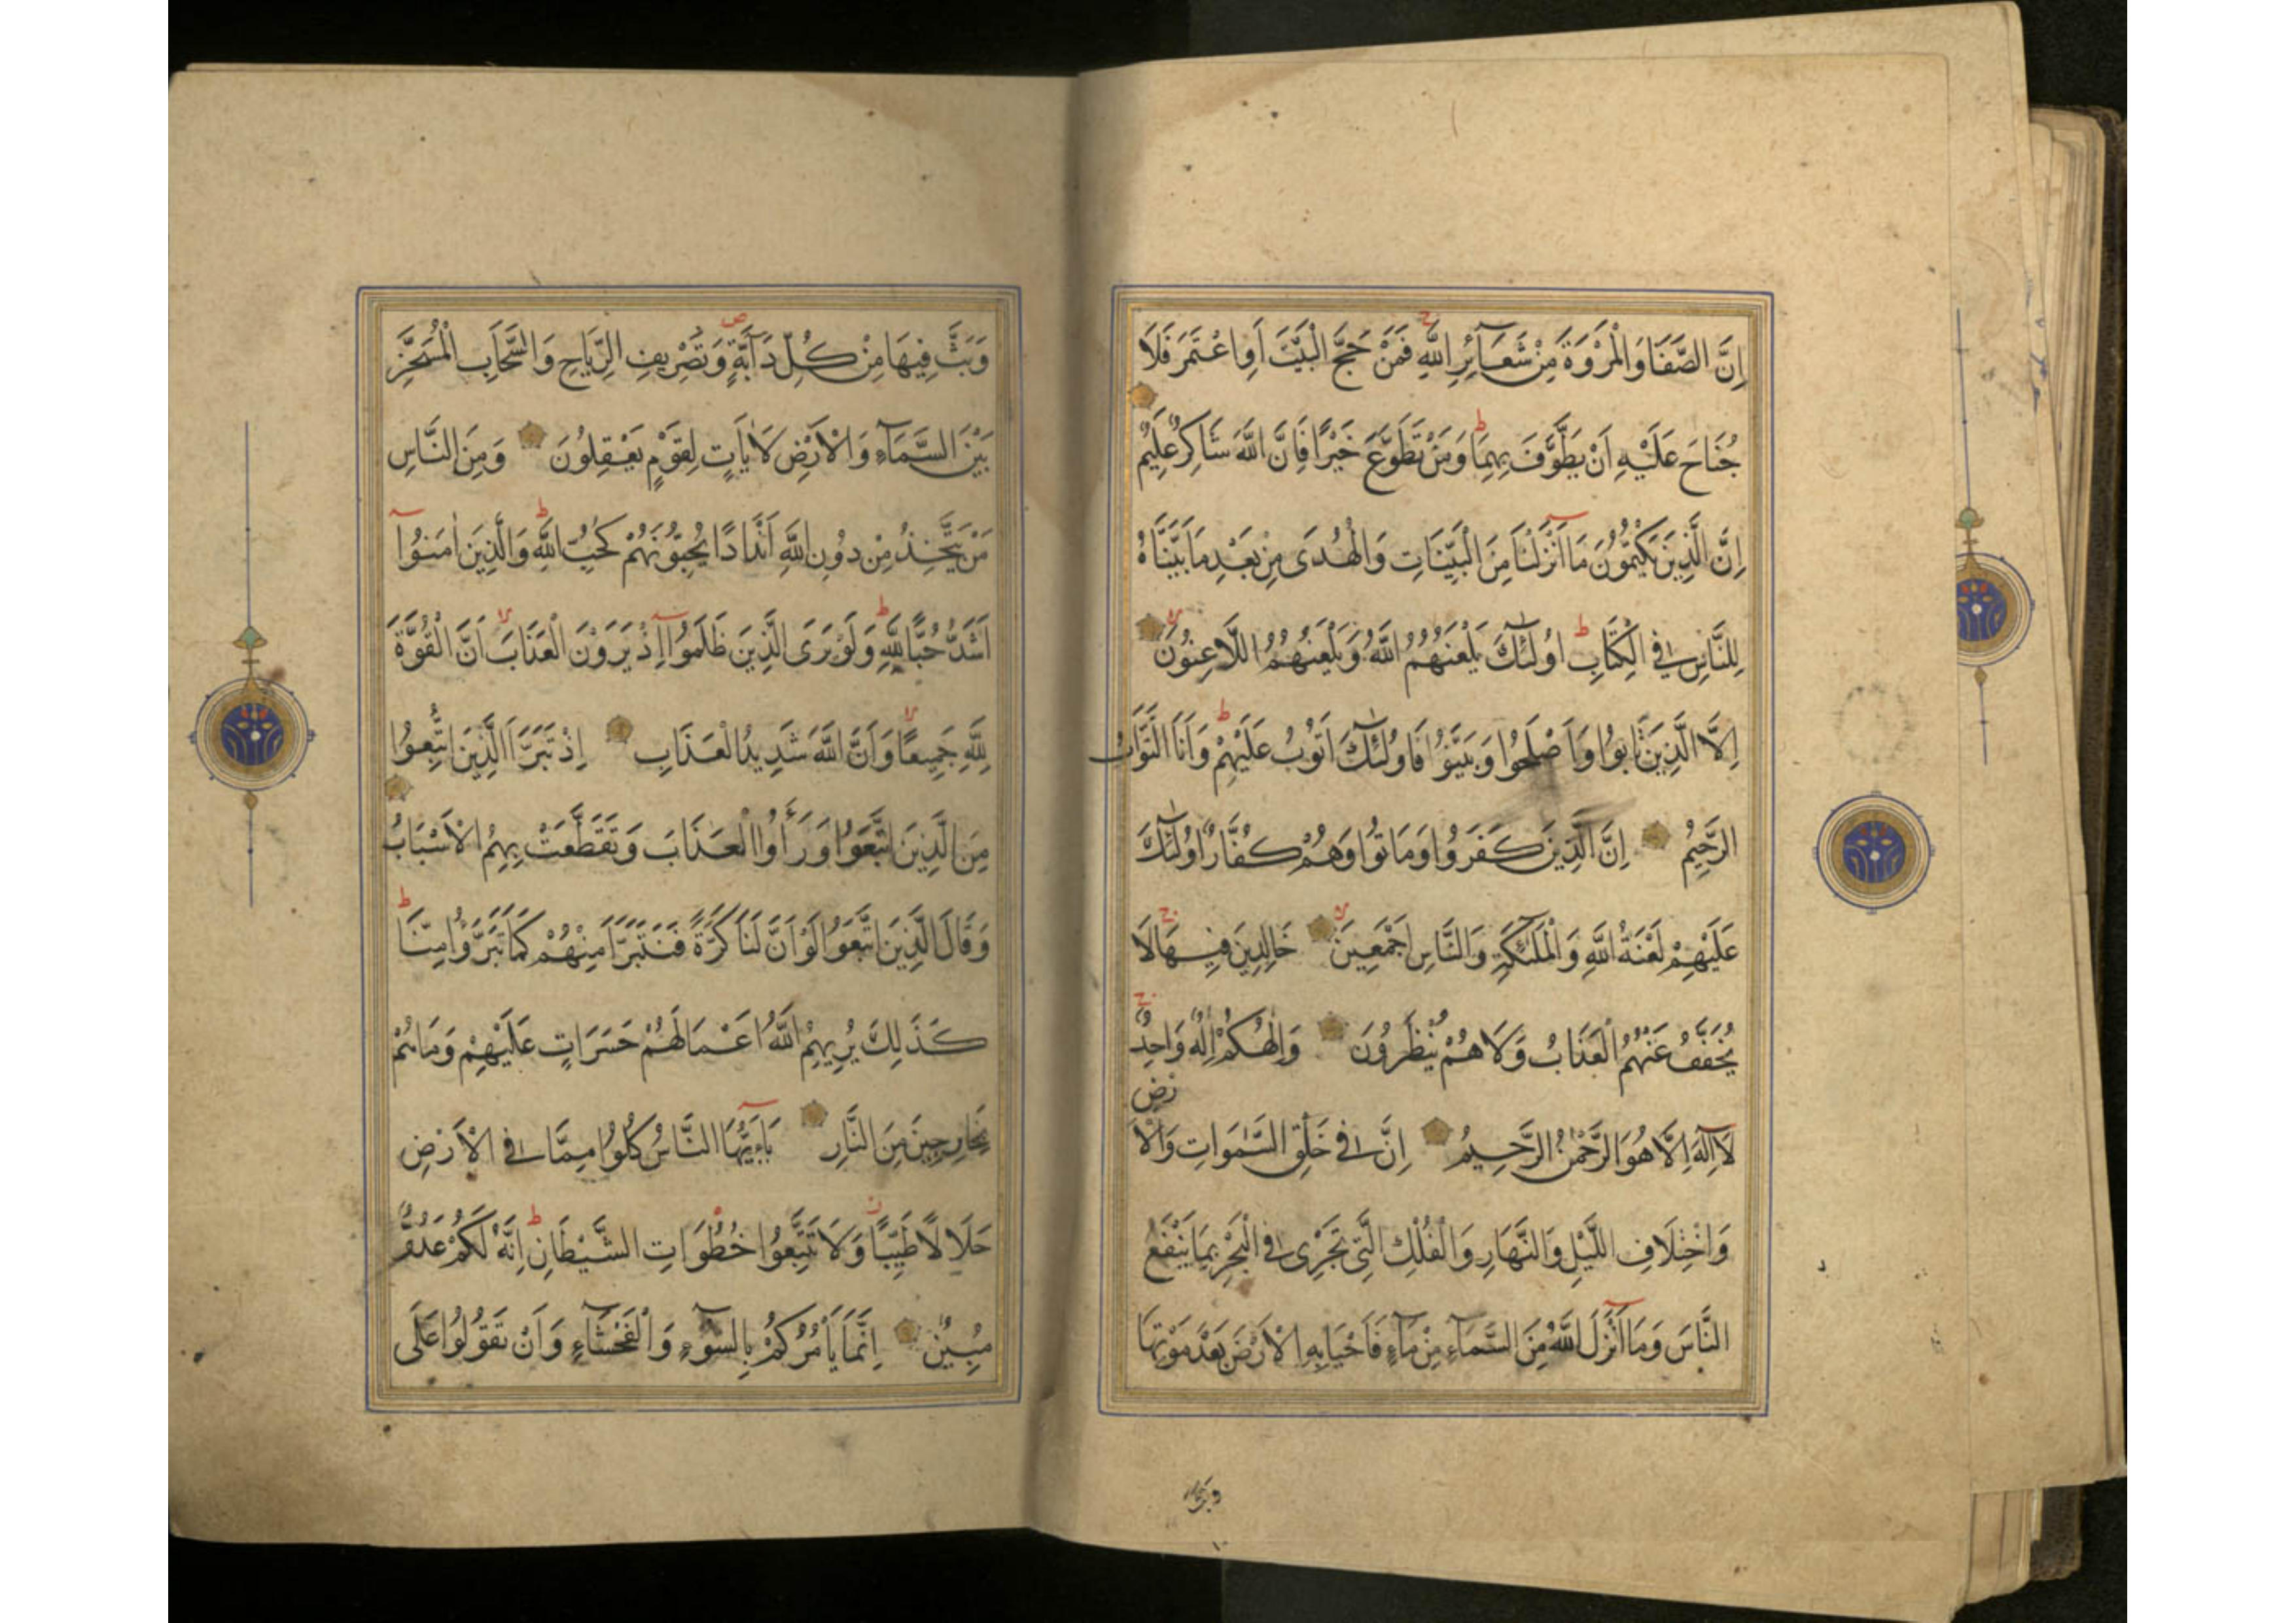 اِنَّ الصَّفَا وَالْمَرْوَةَ مِنْ شَعَآئِرِ اللّٰهِ فَمَنْ حَجَّ الْبَيْتَ اَوِ اعْتَمَرَ فَلَا
جُنَاحَ عَلَيْهِ اَنْ يَطَّوَّفَ بِهِمَا وَمَنْ تَطَوَّعَ خَيْرًا فَاِنَّ اللّٰهَ شَاكِرٌ عَلِيمٌ
اِنَّ الَّذِينَ يَكْتُمُونَ مَا اَنْزَلْنَا مِنَ الْبَيِّنَاتِ وَالْهُدَى مِنْ بَعْدِ مَا بَيَّنَّاهُ
لِلنَّاسِ فِي الْكِتَابِ اُولٰئِكَ يَلْعَنُهُمُ اللّٰهُ وَيَلْعَنُهُمُ اللَّاعِنُونَ
اِلَّا الَّذِينَ تَابُوا وَاَصْلَحُوا وَبَيَّنُوا فَاُولٰئِكَ اَتُوبُ عَلَيْهِمْ وَاَنَا التَّوَّابُ
الرَّحِيمُ اِنَّ الَّذِينَ كَفَرُوا وَمَاتُوا وَهُمْ كُفَّارٌ اُولٰئِكَ
عَلَيْهِمْ لَعْنَةُ اللّٰهِ وَالْمَلٰئِكَةِ وَالنَّاسِ اَجْمَعِينَ خَالِدِينَ فِيهَا لَا
يُخَفَّفُ عَنْهُمُ الْعَذَابُ وَلَا هُمْ يُنْظَرُونَ وَاِلٰهُكُمْ اِلٰهٌ وَاحِدٌ
لَا اِلٰهَ اِلَّا هُوَ الرَّحْمٰنُ الرَّحِيمُ اِنَّ فِي خَلْقِ السَّمٰوَاتِ وَالْاَرْضِ
وَاخْتِلَافِ اللَّيْلِ وَالنَّهَارِ وَالْفُلْكِ الَّتِي تَجْرِي فِي الْبَحْرِ بِمَا يَنْفَعُ
النَّاسَ وَمَا اَنْزَلَ اللّٰهُ مِنَ السَّمَآءِ مِنْ مَآءٍ فَاَحْيَا بِهِ الْاَرْضَ بَعْدَ مَوْتِهَا
وَبَثَّ
وَبَثَّ فِيهَا مِنْ كُلِّ دَآبَّةٍ وَتَصْرِيفِ الرِّيَاحِ وَالسَّحَابِ الْمُسَخَّرِ
بَيْنَ السَّمَآءِ وَالْاَرْضِ لَاٰيَاتٍ لِقَوْمٍ يَعْقِلُونَ وَمِنَ النَّاسِ
مَنْ يَتَّخِذُ مِنْ دُونِ اللّٰهِ اَنْدَادًا يُحِبُّونَهُمْ كَحُبِّ اللّٰهِ وَالَّذِينَ اٰمَنُوا
اَشَدُّ حُبًّا لِلّٰهِ وَلَوْ يَرَى الَّذِينَ ظَلَمُوا اِذْ يَرَوْنَ الْعَذَابَ اَنَّ الْقُوَّةَ
لِلّٰهِ جَمِيعًا وَاَنَّ اللّٰهَ شَدِيدُ الْعَذَابِ اِذْ تَبَرَّاَ الَّذِينَ اتُّبِعُوا
مِنَ الَّذِينَ اتَّبَعُوا وَرَاَوُا الْعَذَابَ وَتَقَطَّعَتْ بِهِمُ الْاَسْبَابُ
وَقَالَ الَّذِينَ اتَّبَعُوا لَوْ اَنَّ لَنَا كَرَّةً فَنَتَبَرَّاَ مِنْهُمْ كَمَا تَبَرَّؤُا مِنَّا
كَذَلِكَ يُرِيهِمُ اللّٰهُ اَعْمَالَهُمْ حَسَرَاتٍ عَلَيْهِمْ وَمَا هُمْ
بِخَارِجِينَ مِنَ النَّارِ يَاءَيُّهَا النَّاسُ كُلُوا مِمَّا فِي الْاَرْضِ
حَلَالًا طَيِّبًا وَلَا تَتَّبِعُوا خُطُوَاتِ الشَّيْطَانِ اِنَّهُ لَكُمْ عَدُوٌّ
مُبِينٌ اِنَّمَا يَاْمُرُكُمْ بِالسُّوٓءِ وَالْفَحْشَآءِ وَاَنْ تَقُولُوا عَلَى